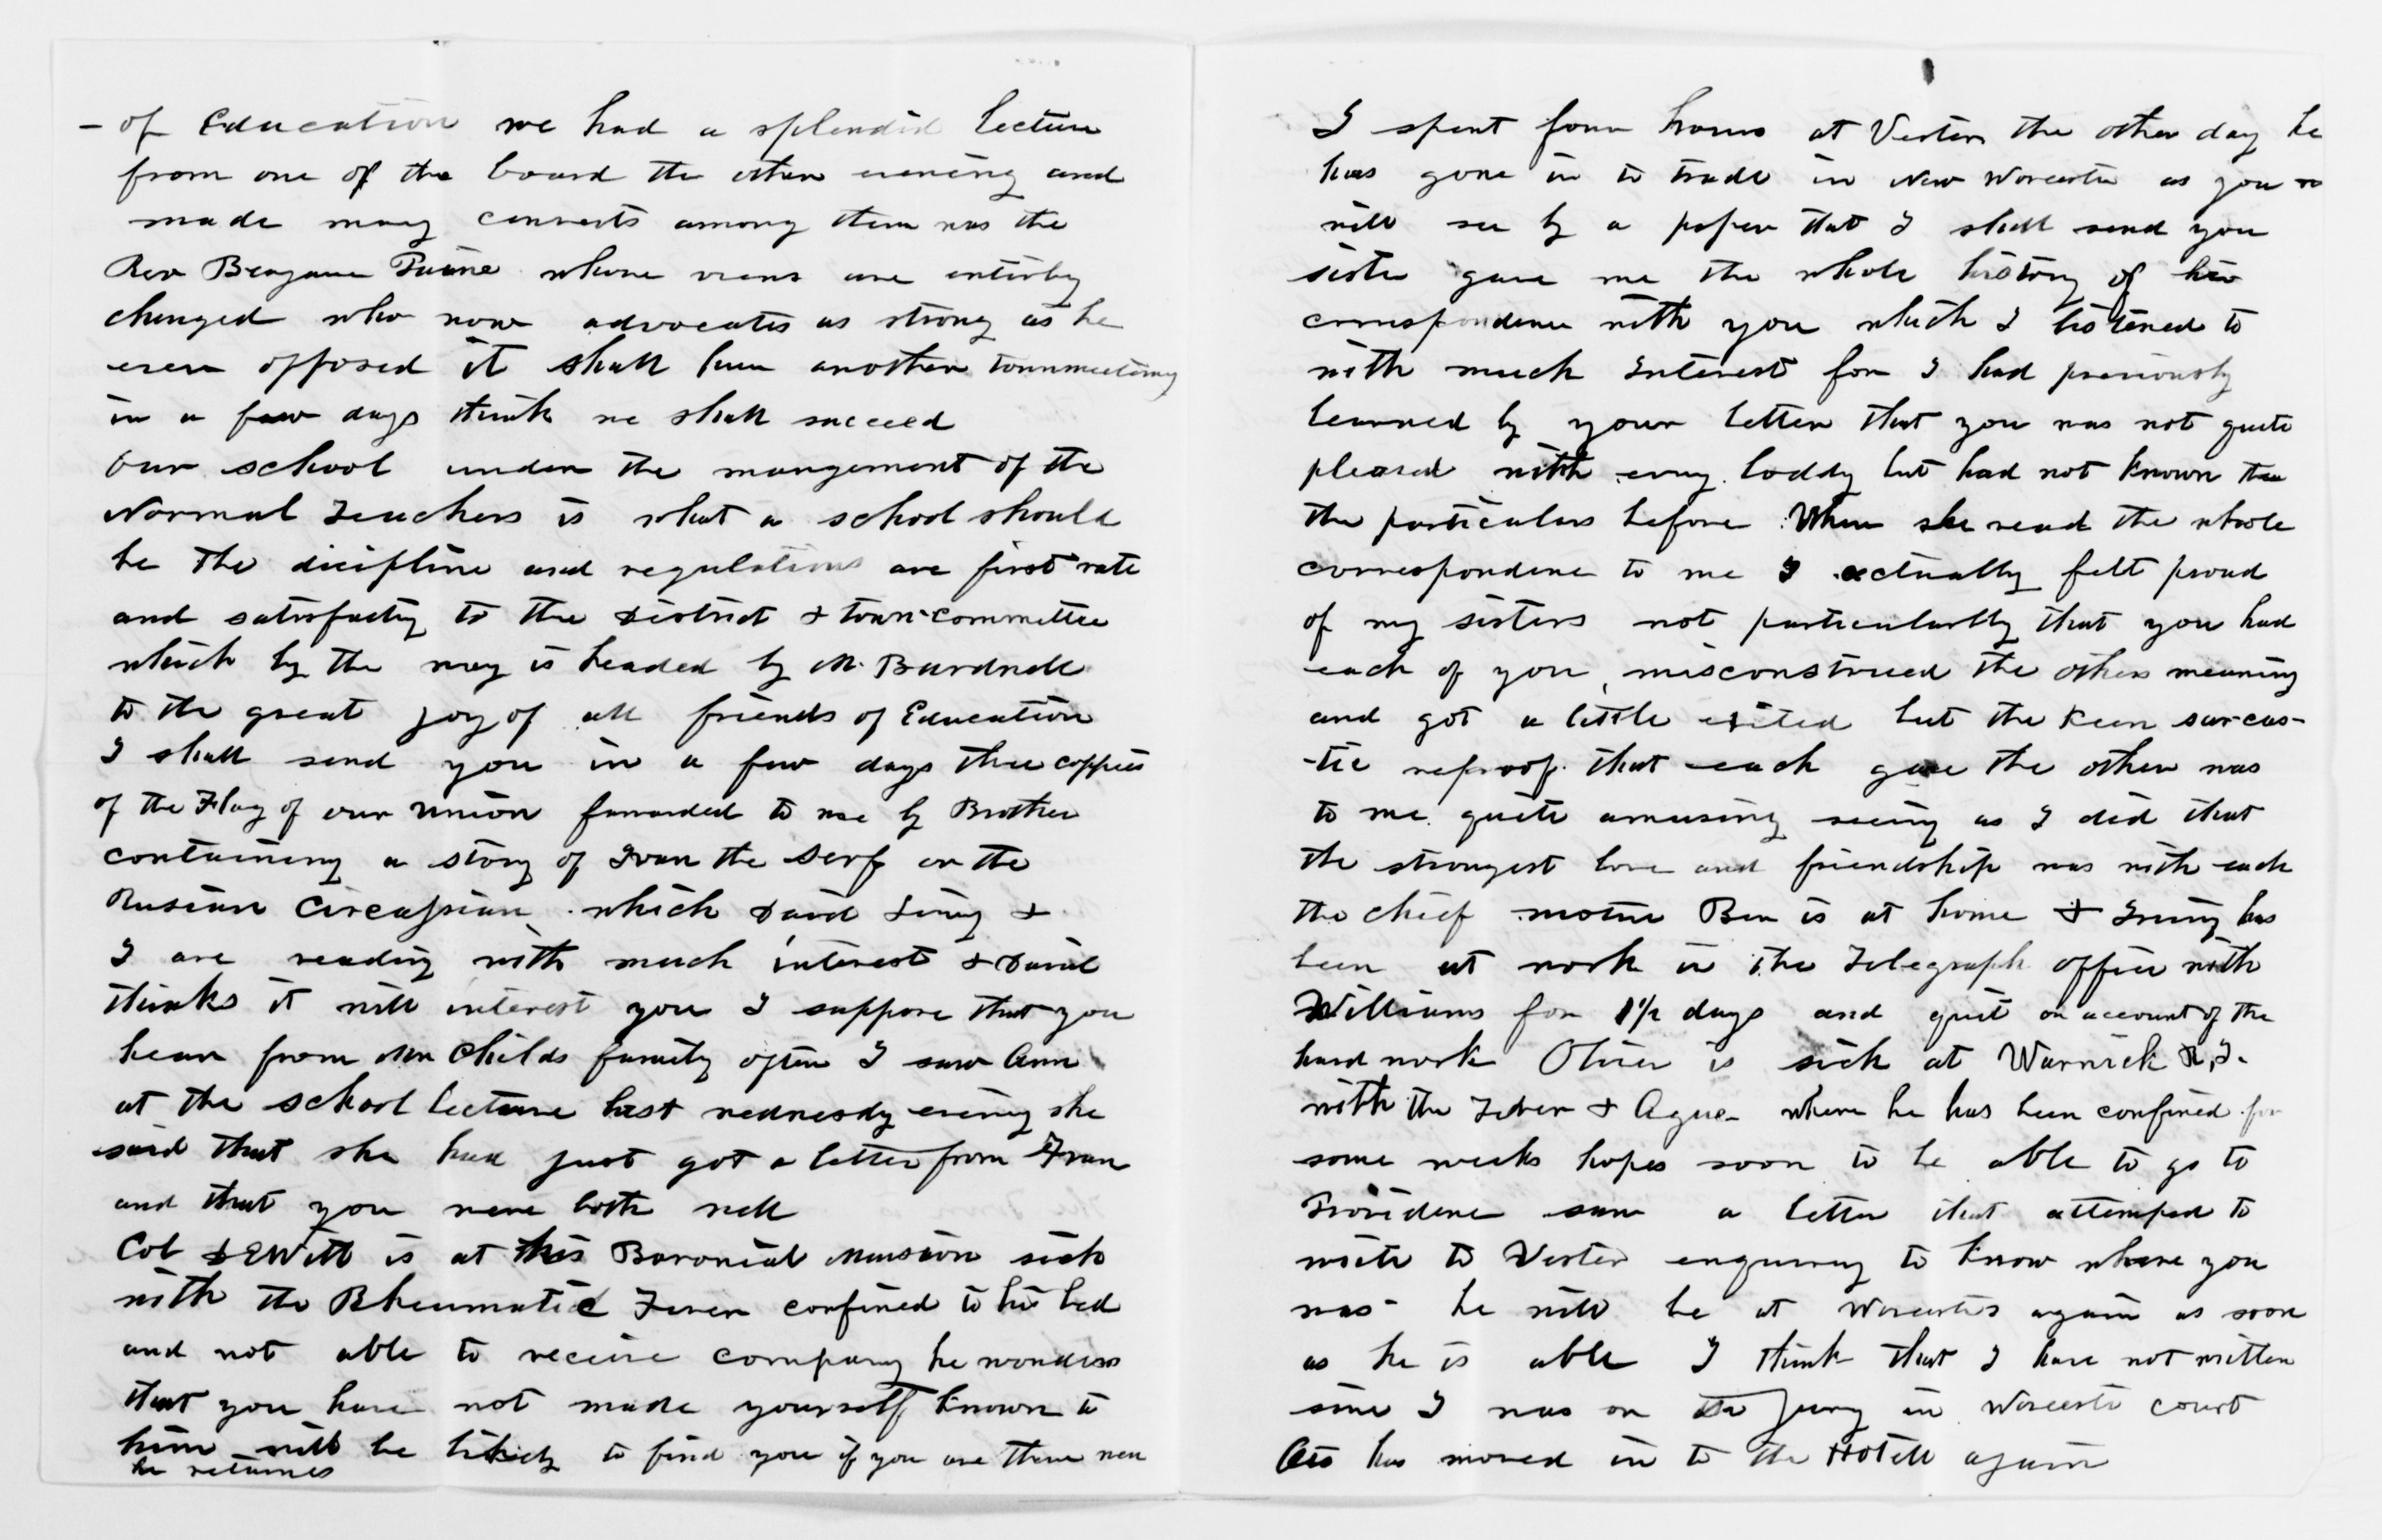 - of Education we had a splendid lecture
from one of the board the other evening and
made many converts among them was the
Rev Benjamin Paine whose views are entirly
changed who now advocates as strong as he
ever opposed it shall have another townmeeting
in a few days think we shall succeed
Our school under the mangement of the
Normal Teachers is what a school should
be the dicipline and regulations are first rate
and satisfacty to the District & town-committee
which by the way is headed by M. Burdnell
to the great joy of all friends of Education
I shall send you in a few days three coppies
of the Flag of our Union forwarded to me by Brother
containing a story of Ivan the Serf or the
Rusian Circassian which David Irving &
I are reading with much interest & David
thinks it will interest you I suppose that you
hear from Mr Childs family often I saw Ann
at the school lecture last wednesdy evening she
said that she had just got a letter from Fran
and that you were both well
Col DeWitt is at his Baronial Mansion sick
with the Rheumatic Fever confined to his bed
and not able to receive company he wonders
that you have not made yourself known to
him will be likely to find you if you are there when
he returnes
I spent four hours at Vesters the other day he
has gone in to trade in New Worcester as you
will see by a paper that I shall send you
sister gave me the whole history of her
correspondence with you which I listened to
with much Interest for I had previously
learned by your letter that you was not quite
pleased with evry boddy but had not known
the particulars before When she read the whole
correspondence to me I actually felt proud
of my sisters not particularlly that you had
each of you misconstrued the others meaning
and got a little exited but the keen sarcas-
-tic reproof that each gave the other was
to me quite amusing seeing as I did that
the strongest love and friendship was with each
the chief motive Ben is at home & Irving has
been at work in the Telegraph office with
Williams for 1 1/2 days and quit on account of the
hard work Oliver is sick at Warwick R,I.
with the Fever & Ague where he has been confined for
some weeks hopes soon to be able to go to
Providence saw a letter that attemped to
write to Vester enquiring to know where you
was - he will be at Worcester again as soon
as he is able I think that I have not written
since I was on the Jury in Worcester court
Otis has moved in to the Hotell again